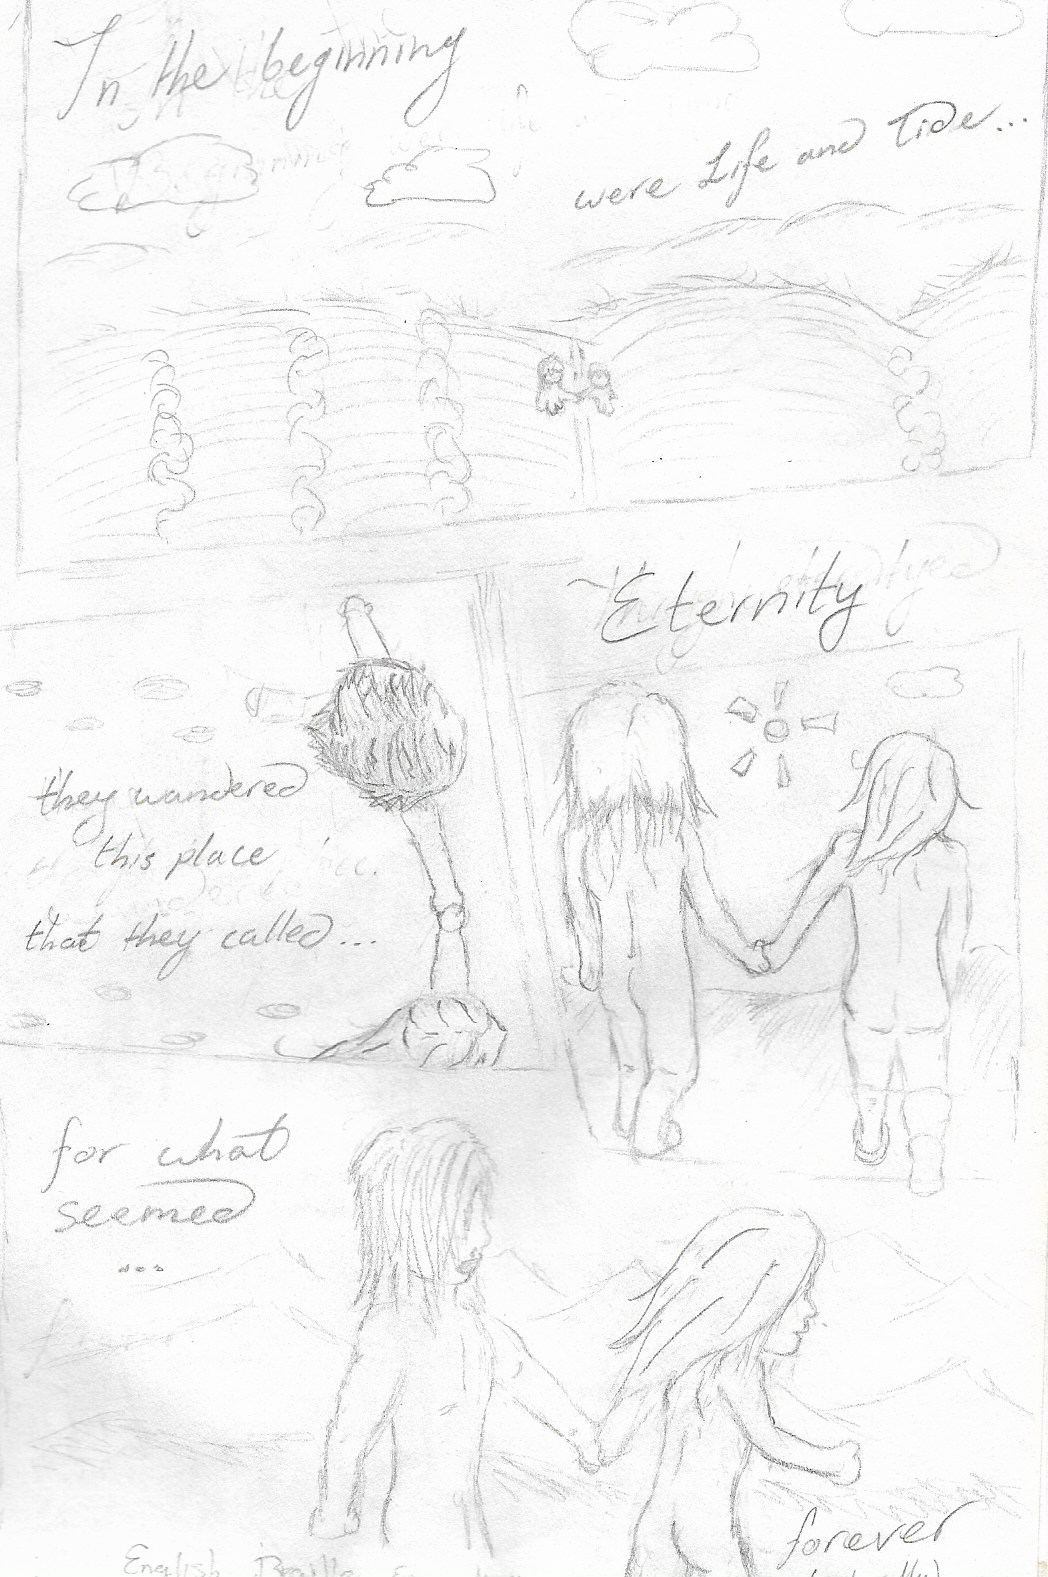 In the beginning
were Life and Tide...
they wandered
this place
that they called...
Eternity
for what
seemed
...
forever
English Braille